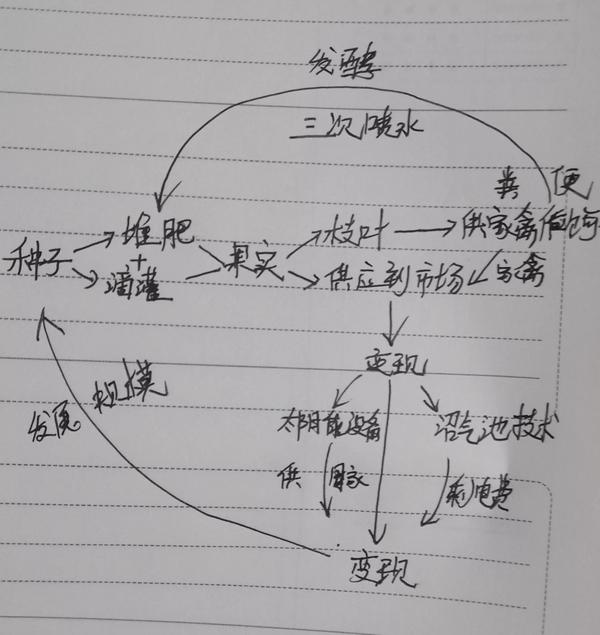 发酵
三次喷水
粪 便
种子 堆肥 果实 枝叶 供家禽
+
滴灌 供应到市场 家禽
变现
太阳能设备 沼气池技术
发展 规模
供 国家 电费
变现